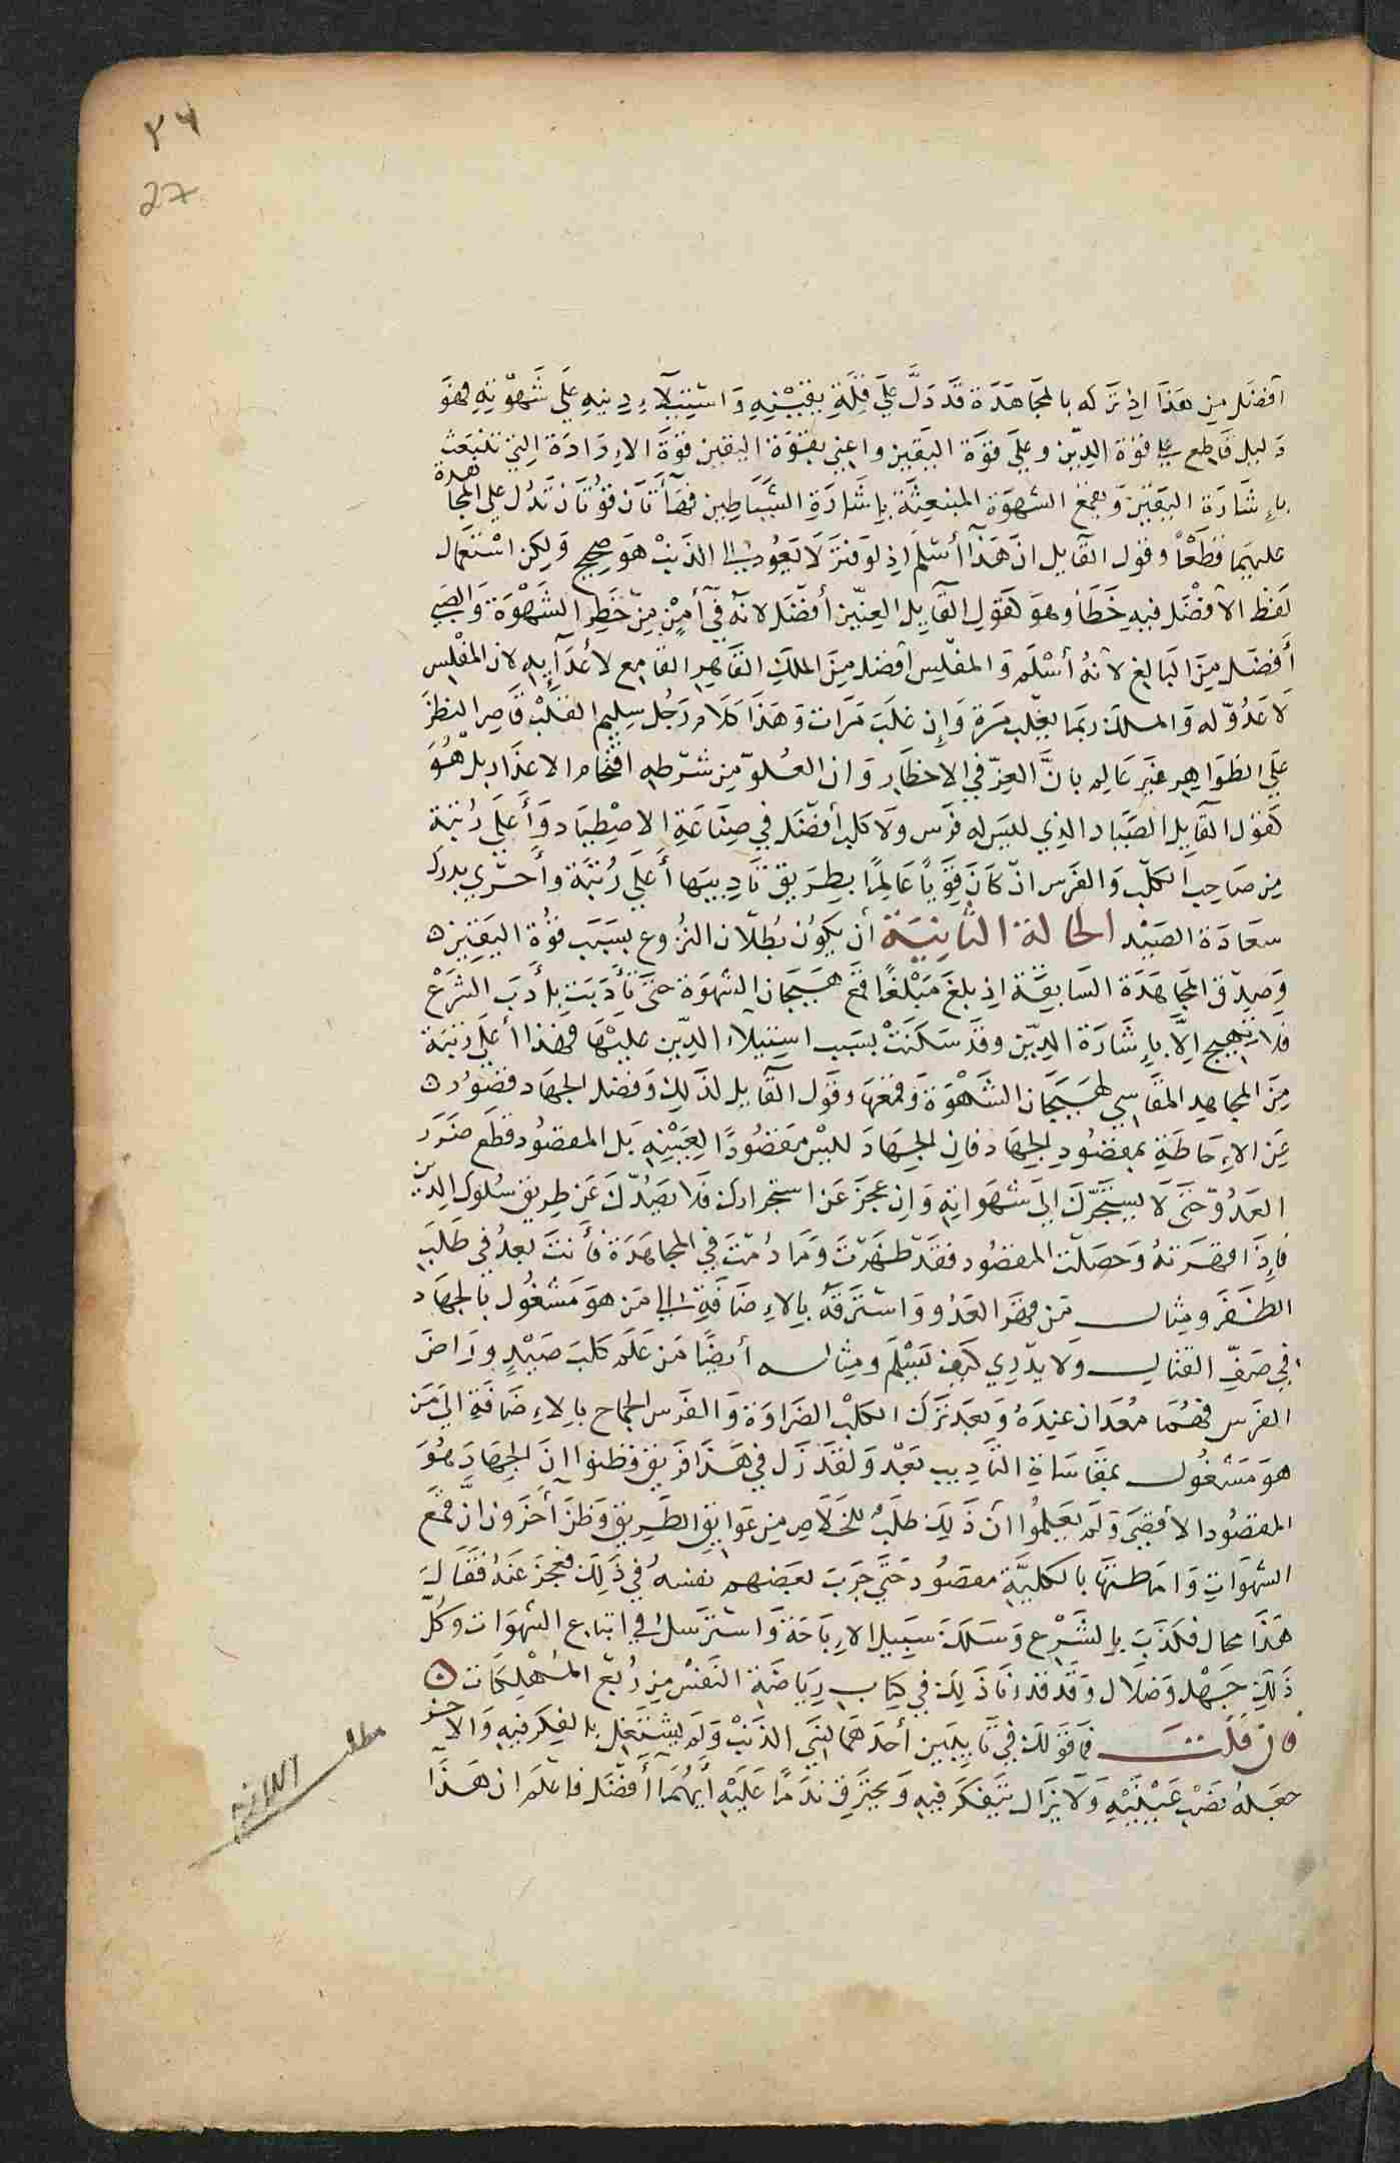 ٢٦
27
أفضل من هذا إذ تركه بالمجاهدة قد دل على قلة يقينه واستيلاء دينه على شهوته فهو
دليل قاطع على قوة الدين وعلى قوة اليقين واعني بقوة اليقين قوة الإرادة التي تنبعث
بإشارة اليقين وتقمع الشهوة المنبعثة بإشارة الشياطين فهاتان قوتان تدل على المجاهدة
عليهما قطعًا وقول القايل ان هذا أسلم اذ لو فتر لا يعود إلى الذنب هو صحيح ولكن استعمال
لفظ الأفضل فيه خطأ وهو كقول القايل العنين أفضل لانه في أمن من خطر الشهوة والصبي
أفضل من البالغ لأنه أسلم والمفلس أفضل من الملك القاهر القامع لأعدآيه لان المفلس
لا عدو له والملك ربما يغلب مرة وإن غلب مرات وهذا كلام رجل سليم القلب قاصر النظر
على الظواهر غير عالم بان العز في الاخطار وان العلو من شرطه اقتحام الاغرار بل هو
كقول القايل الصياد الذي ليس له فرس ولا كلب أفضل في صناعة الاصطياد وأعلى رتبة
من صاحب الكلب والفرس ان كان قويًا عالمًا بطريق تاديبها أعلى رتبة وأحرى بدرك
سعادة الصيد الحالة الثانية أن يكون بطلان النزوع بسبب قوة اليقين ه
وصدق المجاهدة السابقة اذ بلغ مبلغًا قمع هيجان الشهوة حتى تأدبت بأدب الشرع
فلا تهيج إلا بإشارة الدين وقد سكنت بسبب استيلاء الدين عليها فهذا أعلى رتبة
من المجاهد المقاسي لهيجان الشهوة وقمعها وقول القايل لذلك فضل الجهاد قصور ه
عن الإحاطة بمقصود الجهاد فان الجهاد ليس مقصودًا لعينه بل المقصود قطع ضرر
العدو حتى لا يستجرك إلى شهواته وان عجز عن استجرارك فلا يصدك عن طريق سلوك الدين
فإذا قهرته وحصلت المقصود فقد ظهرت وما دمت في المجاهدة فأنت بعد في طلب
الظفر ومثال من قهر العدو واسترقه بالإضافة إلى من هو مشغول بالجهاد
في صف القتال ولا يدري كيف يسلم ومثاله أيضًا من علم كلب صيد وراض
الفرس فهما معدان عنده وبعد ترك الكلب الضراوة والفرس الجماح بالإضافة إلى من
هو مشغول بمقاساة التاديب بعد ولقد زل في هذا فريق فظنوا ان الجهاد هو
المقصود الأقصى ولم يعلموا ان ذلك طلب للخلاص من عوايق الطريق وظن آخرون ان قمع
الشهوات واماطتها بالكلية مقصود حتى جرب بعضهم نفسه في ذلك فعجز عنه فقال
هذا محال فكذب بالشرع وسلك سبيل الإباحة واسترسل في اتباع الشهوات وكل
ذلك جهل وضلال وقد قدرنا ذلك في كتاب رياضة النفس من ربع المهلكات ه
فان قلت فما قولك في تايبين أحدهما نسي الذنب ولم يشتغل بالفكر فيه والآخر
جعله نصب عينيه ولا يزال يتفكر فيه ويحترق ندمًا عليه أيهما أفضل فاعلم ان هذا
مطلب